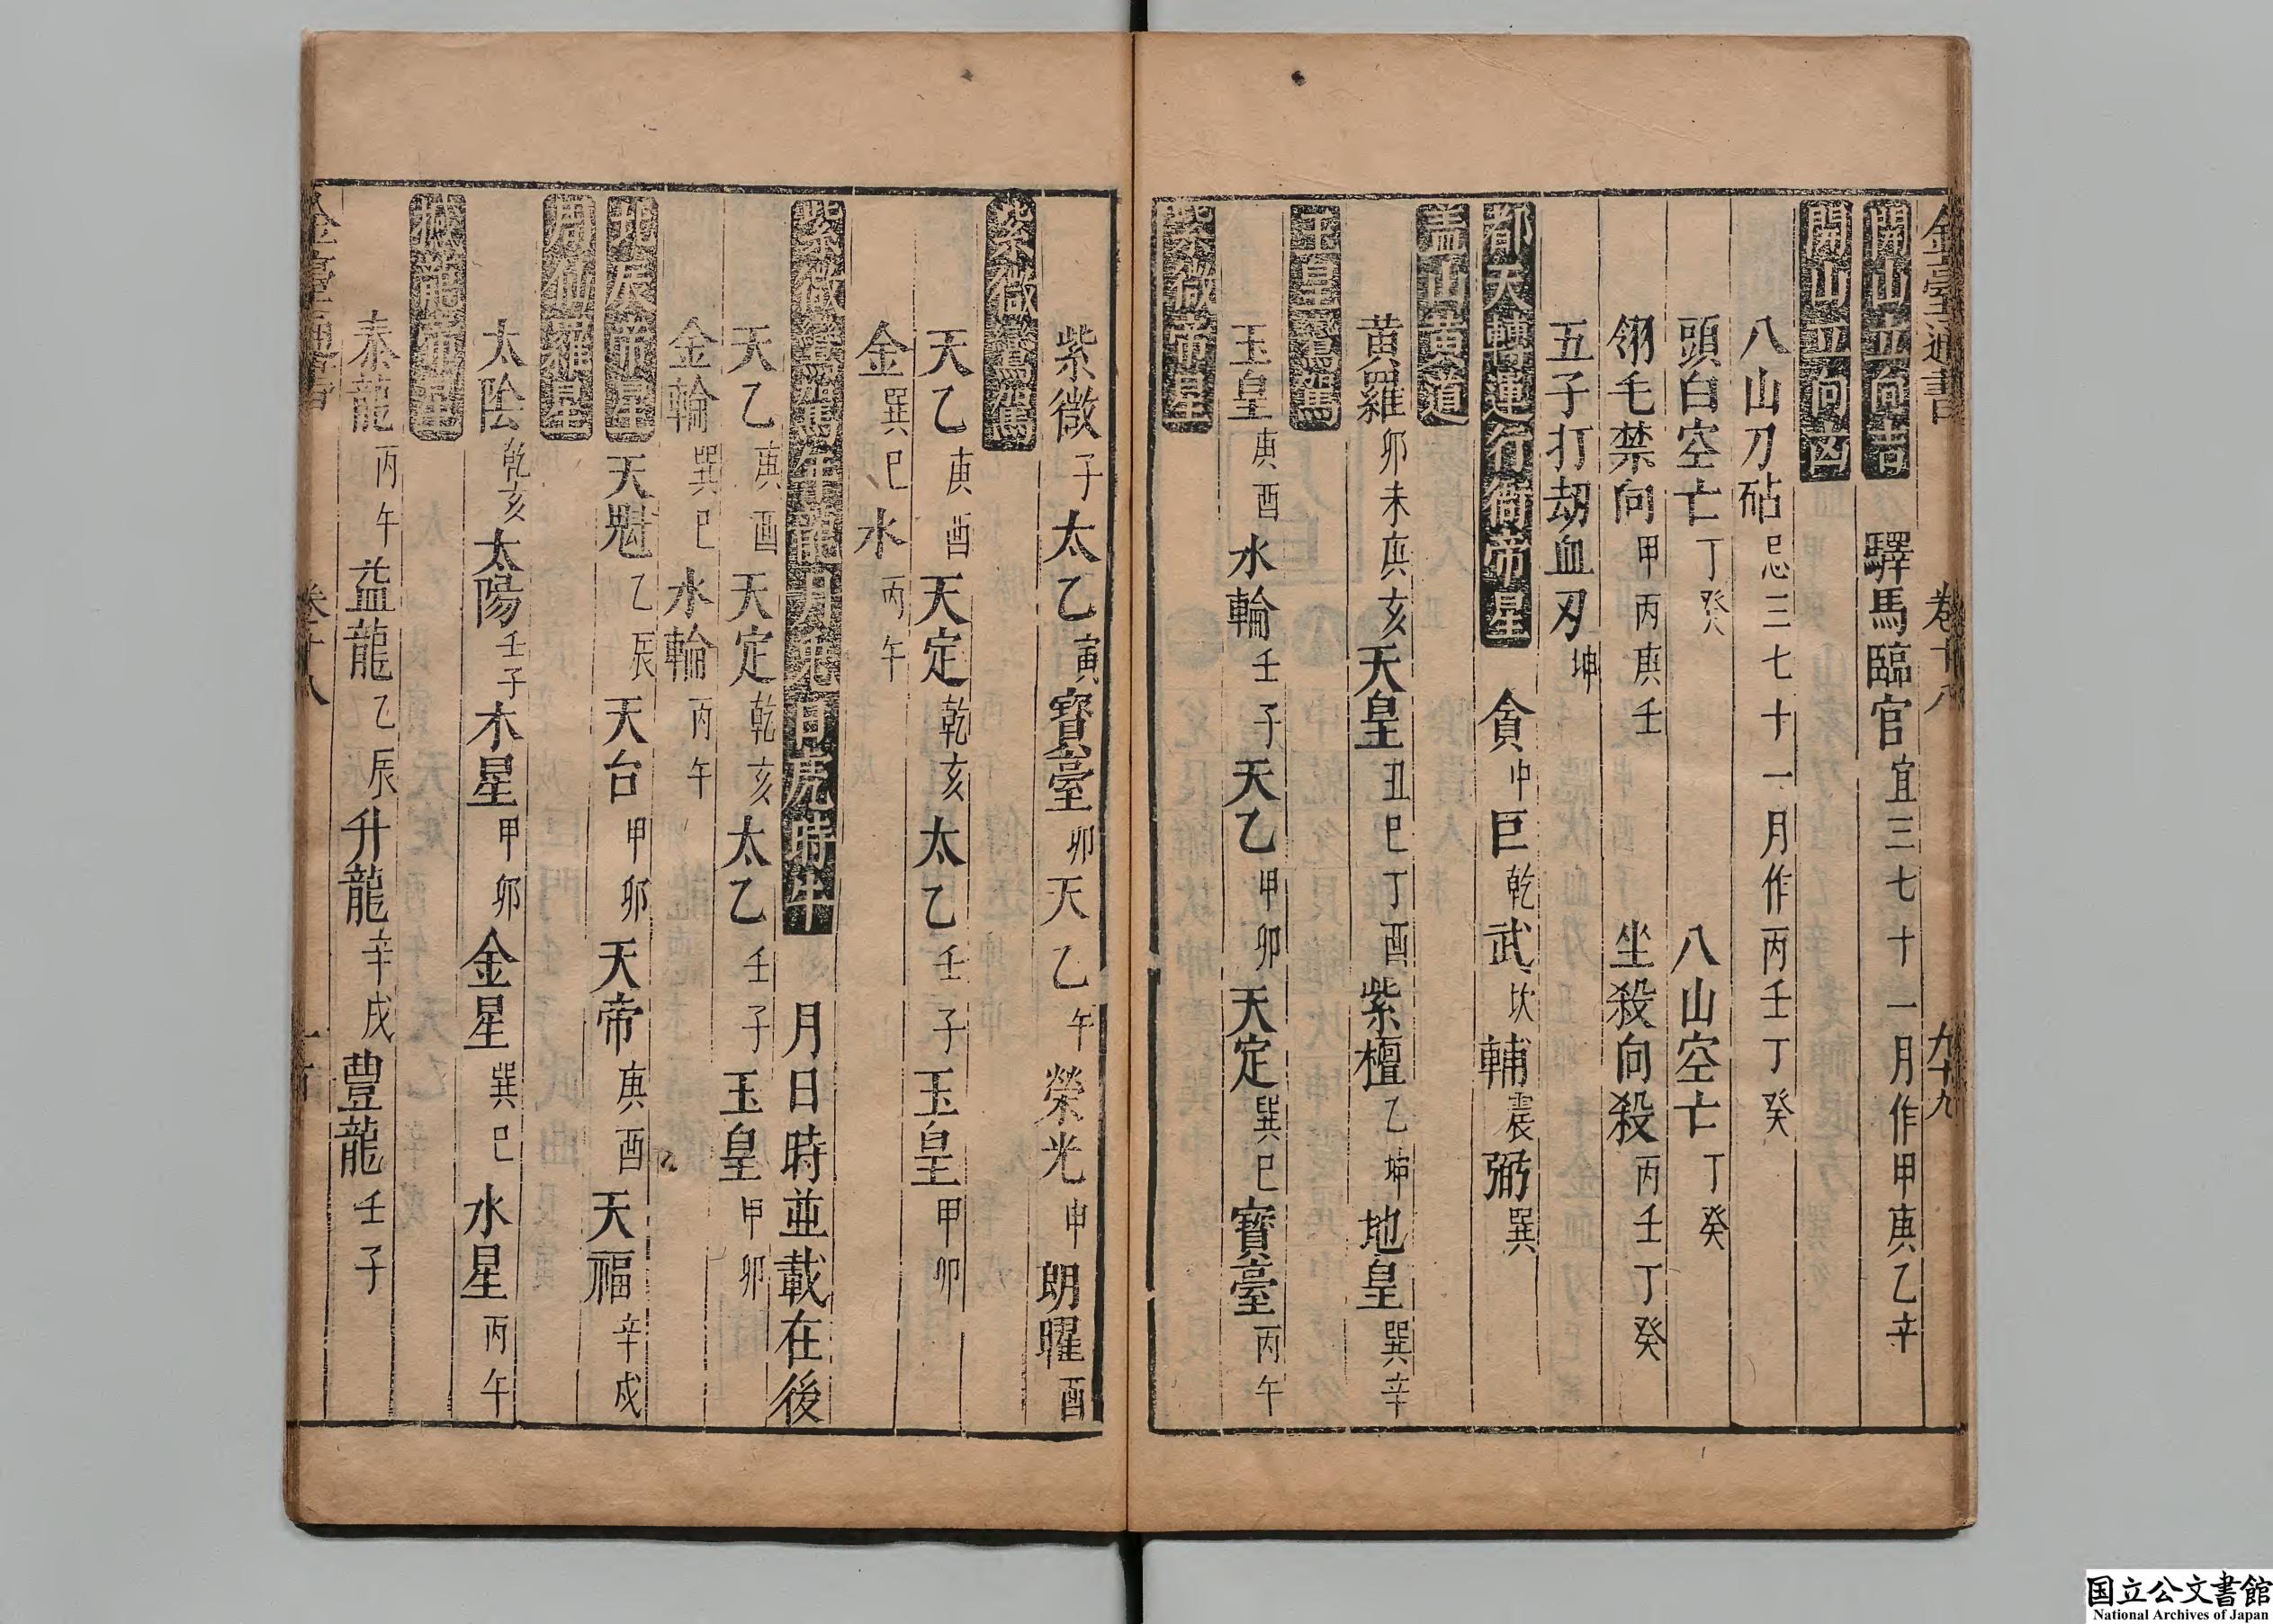 金臺通書 卷十八 九十九
開山立向吉 驛馬臨官宜三七十一月作甲庚乙辛
開山立向凶
八山刀砧忌三七十一月作丙壬丁癸
頭白空亡丁癸 八山空亡丁癸
翎毛禁向甲丙庚壬 坐殺向殺丙壬丁癸
五子打劫血刃坤
都天轉運行衙帝星 貪中巨乾武坎輔震弼巽
盖山黄道
黄羅卯未庚亥天皇丑巳丁酉紫檀乙坤地皇巽辛
玉皇鸞駕
玉皇庚酉水輪壬子天乙甲卯天定巽巳寶臺丙午
紫微帝星
紫微子太乙寅寶臺卯天乙午榮光申朗曜酉
紫微鸞駕
天乙庚酉天定乾亥太乙壬子玉皇甲卯
金巽巳水丙午
紫微鸞駕年龍月兔日虎時牛 月日時並載在後
天乙庚酉天定乾亥太乙壬子玉皇甲卯
金輪巽巳水輪丙午
帝星 天魁乙辰天台甲卯天帝庚酉天福辛戌
周仙羅星
太陰乾亥太陽壬子木星甲卯金星巽巳水星丙午
撼龍帝星
泰龍丙午益龍乙辰升龍辛戌豐龍壬子
卷十八 一百
国立公文書館
National Archives of Japan